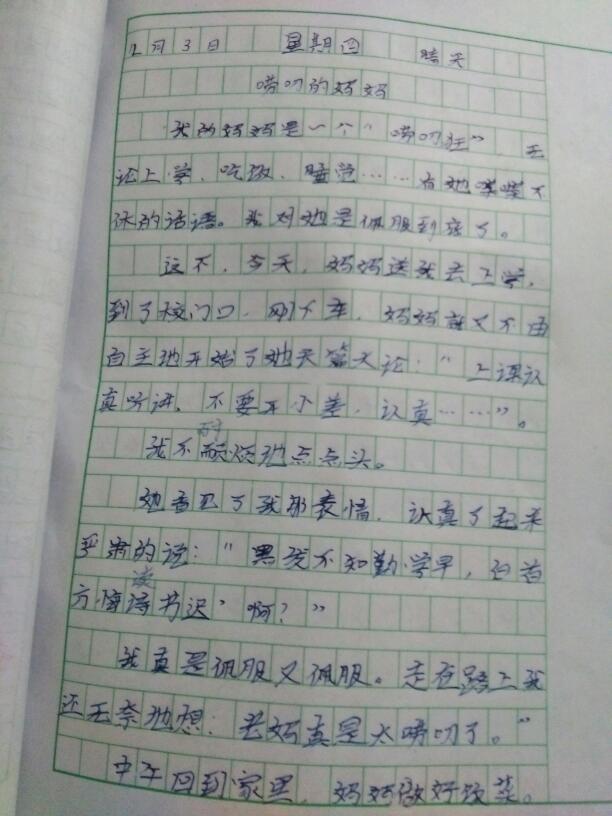 12月3日 星期四 晴天
唠叨的妈妈
我的妈妈是一个“唠叨狂”,无
论上学、吃饭、睡觉……有她喋喋不
休的话语。我对她是佩服到家了。
这不,今天,妈妈送我去上学,
到了校门口,刚下车,妈妈就又不由
自主地开始了她长篇大论:“上课认
真听讲,不要开小差,认真……”。
我不耐烦地点点头。
她看见了我那表情,认真了起来
严肃的说:“黑发不知勤学早,白首
方悔读书迟’啊?”
我真是佩服又佩服。走在路上我
还无奈地想:老妈真是太唠叨了。”
中午回到家里,妈妈做好饭菜。